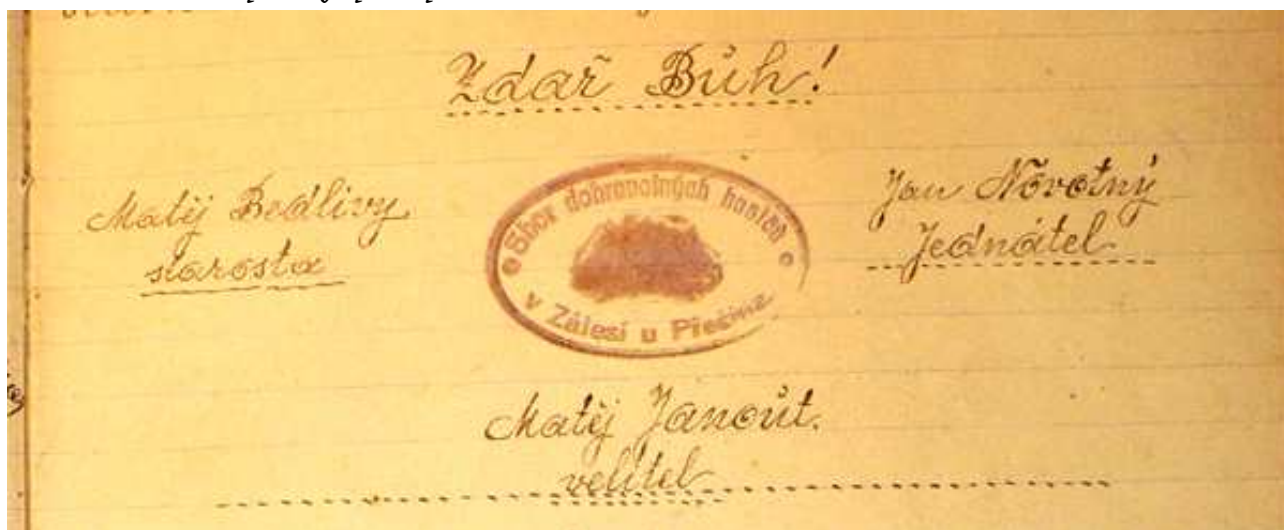 Zdař Bůh!
Matěj Bedlivy
starosta
Sbor dobrovolných hasičů
v Zálesí u Přečína
Jan Novotný
Jednatel
Matěj Janoůt.
velitel